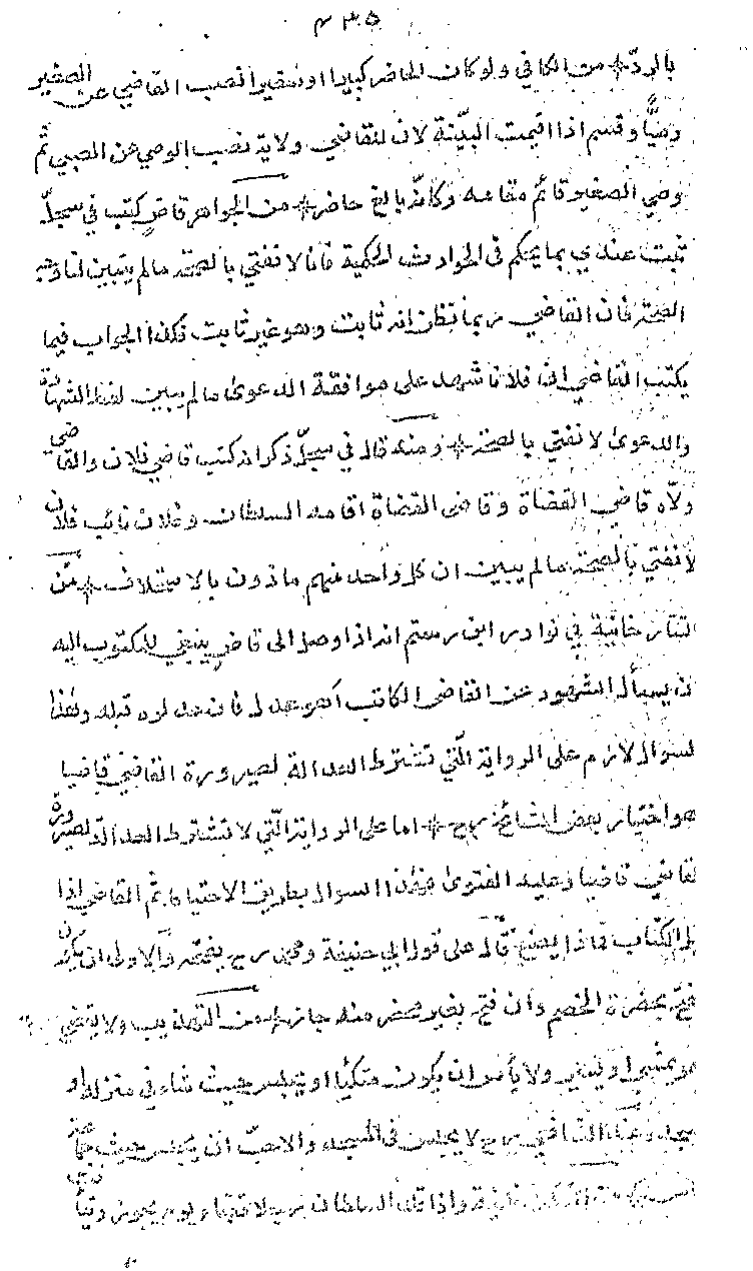 ٤٣٥
بالردّ * من الكافي ولو كان الحاضر كبيرا او صغيرا نصب القاضي عن الصغير
وصيًّا وقسم اذا اقيمت البيّنة لان للقاضي ولاية نصب الوصي عن الصبي ثم
وصي الصغير قائم مقامه وكانّه بالغ حاضر * من الجواهر قاضٍ كتب في سجلّ
ثبت عندي بما يحكم في الحوادث الحكمية فانا لا نفتي بالصحة مالم يتبين لنا وجه
الصحة فان القاضي ربما يظن انه ثابت وهو غير ثابت فكذا الجواب فيما
يكتب القاضي ان فلانا شهد على موافقة الدعوى مالم يبين لفظ الشهادة
والدعوى لا نفتي بالصحة * ومنه قال في سجلّ ذكر انه كتب قاضي فلان والقاضي
ولّاه قاضي القضاة وقاضي القضاة اقامه السلطان وفلان نائب فلان
لا نفتي بالصحة مالم يبين ان كل واحد منهم ماذون بالاستخلاف * من
التتار خانية في نوادر ابن رستم انه اذا وصل الى قاضٍ ينبغي للمكتوب اليه
ان يسأل الشهود عن القاضي الكاتب أهو عدل فان عدلوه قبله وهذا
لسوال لازم على الرواية الّتي تشترط العدالة لصيرورة القاضي قاضيا
هو اختيار بعض المشائخ رح * اما على الرواية الّتي لا تشترط العدالة لصيرورة
لقاضي قاضيا وعليه الفتوى فهذا السوال بطريق الاحتياط ثم القاضي اذا
الكتاب ماذا يصنع قال على قول ابي حنيفة ومحمد رح يفتحه والاولى ان يكون
فتح بحضرة الخصم وان فتح بغير محضر منه جاز * من التهذيب ولا يقضي
هو يمشي او يسير ولا بأس ان يكون متكئا او يجلس حيث شاء في منزله او
مسجد وعند الشافعي رح لا يجلس في المسجد والاحب ان يجلس حيث
واذا قلد السلطان رجلا قضاء يوم يجوز